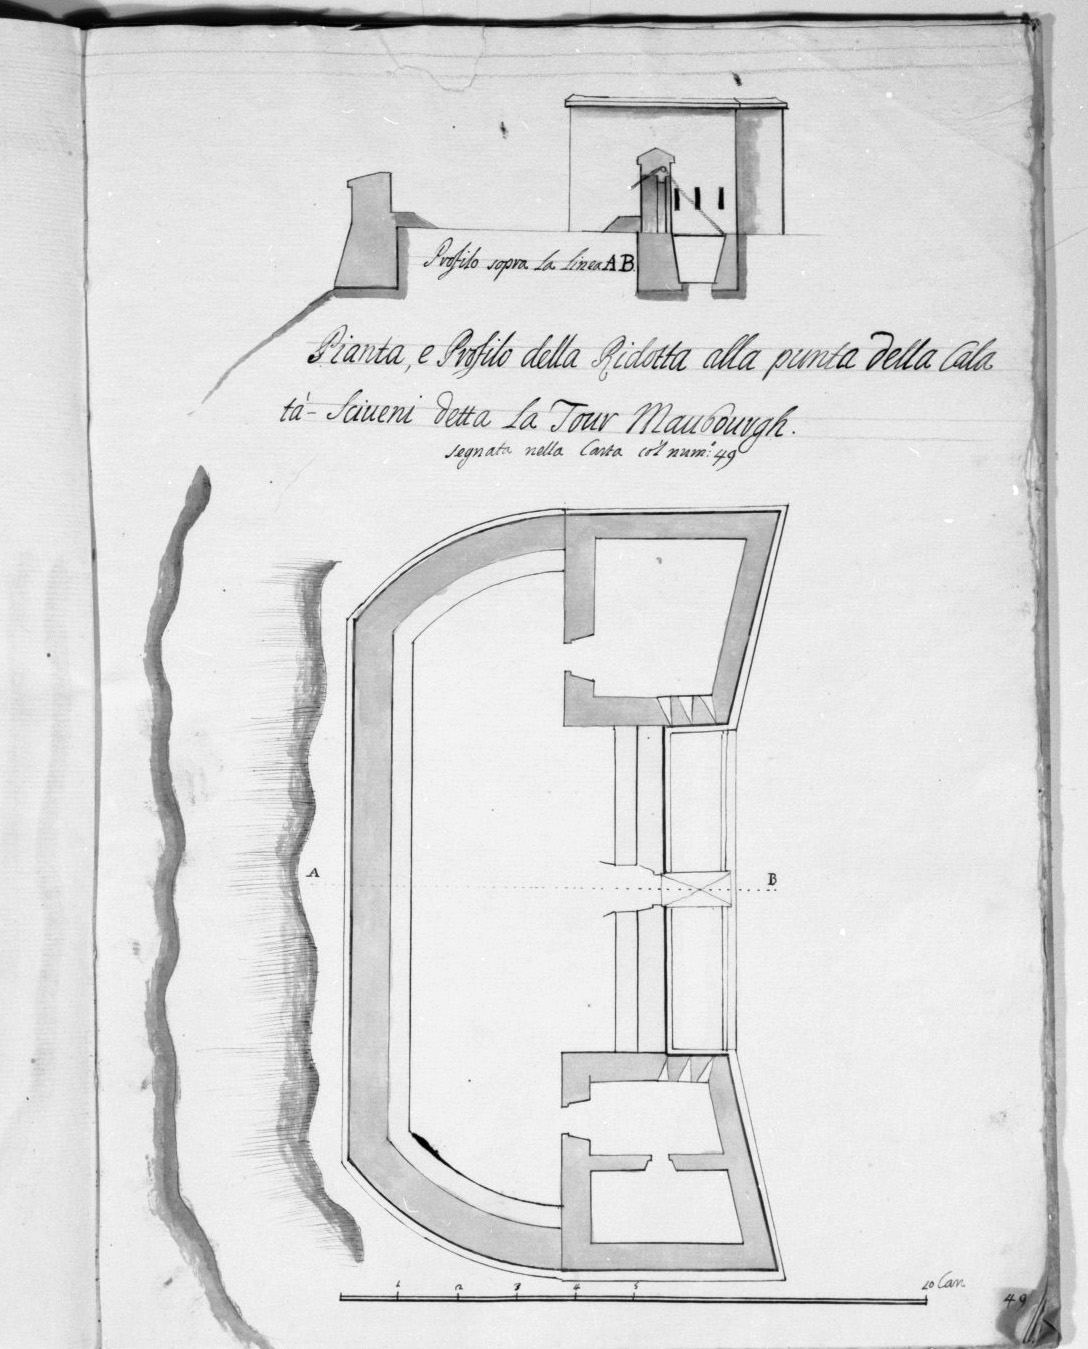 Profilo sopra la linea AB
Pianta, e Profilo della Ridotta alla punta della Cala
tà - Sciueni detta la Tour Maubourgh.
segnata nella Carta col num:o 49
A
B
1 2 3 4 5 10 Can
49